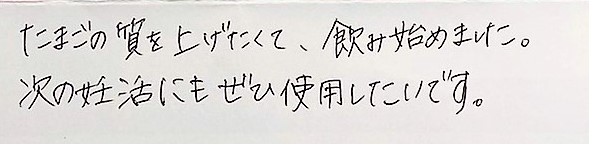 たまごの質を上げたくて、飲み始めました。
次の妊活にもぜひ使用したいです。